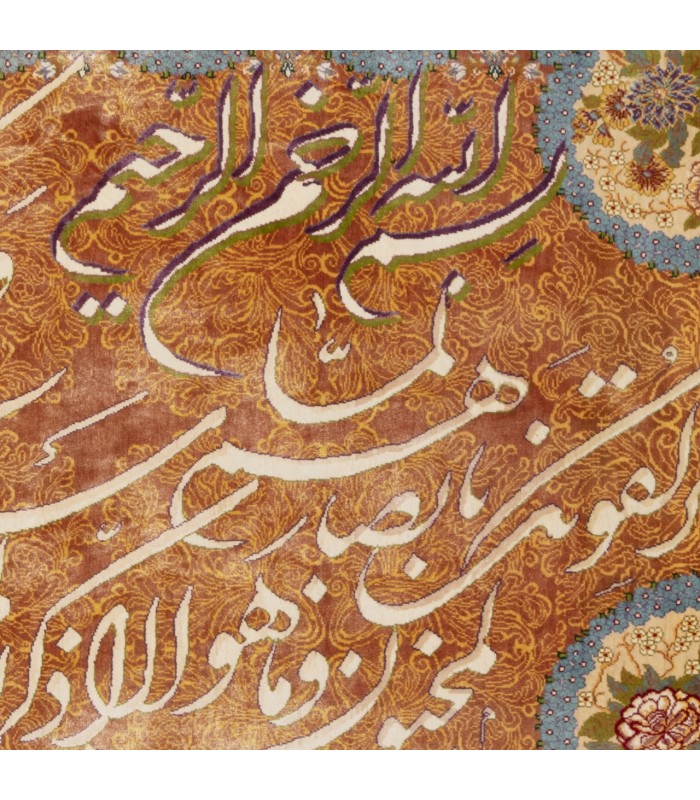 بسم الله الرحمن الرحيم
لقونك بابصارهم لمّا
لمجنون وما هو الا ذكر